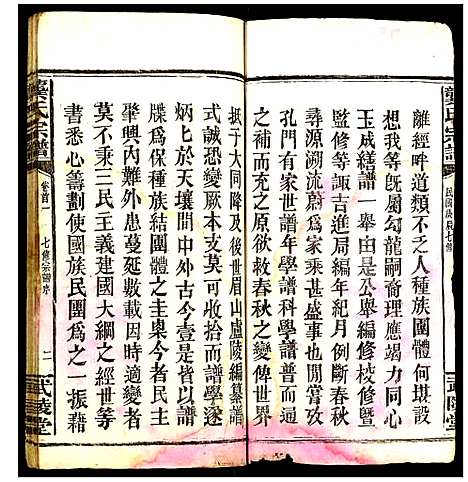 龔氏宗譜
民國庚辰七修
武陵堂
離經畔道類不乏人種族團體何堪設
想我等既屬勾龍嗣裔理應竭力同心
玉成續譜一舉由是公舉編修校修暨
監修等諏古進局編年紀月倒斷春秋
尋源溯流蔚爲家乘甚盛事也聞嘗攷
孔門有家世譜年學譜科學普而適
之補而復之於春秋救春秋之變俾世界
抵于大同降及後世眉山廬陵編纂譜
式誠恐變厥本支可收拾而譜學遂
炳匕於天壤間中外古今壹是皆以譜
牒爲保種族結團體之圭臬今者民主
肇興內難外患蔓延數載因時適變者
莫不本三民主義建國大綱之經世等
書悉心籌劃使國族民團爲之一振藉
龔氏宗譜
卷首一
七修宗譜序
二
武陵堂